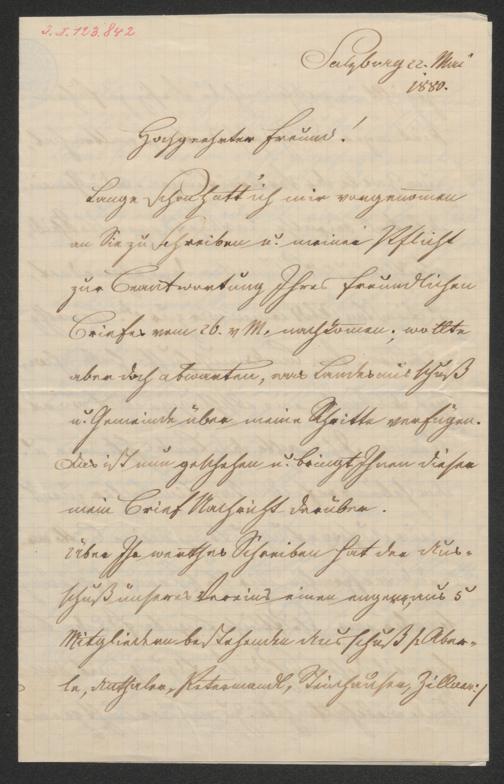 I.N. 123.842
Salzburg 22. Mai
1880.
Hochgeehrter Freund!
Lange schon hatt' ich mir vorgenommen
an Sie zu schreiben u. meiner Pflicht
zur Beantwortung Ihres freundlichen
Briefes vom 26. v M. nachkomen; wollte
aber doch abwarten, was Landesausschuß
u. Gemeinde über meine Schritte verfügen.
Das ist nun geschehen u. bringt Ihnen dieser
mein Brief Nachricht darüber.
Über Ihr werthes Schreiben hat der Aus-
schuß unseres Vereins einen engern, aus 5
Mitgliedern bestehenden Ausschuß /: Aber-
le, Petermandl, Steinhauser, Zillner :/